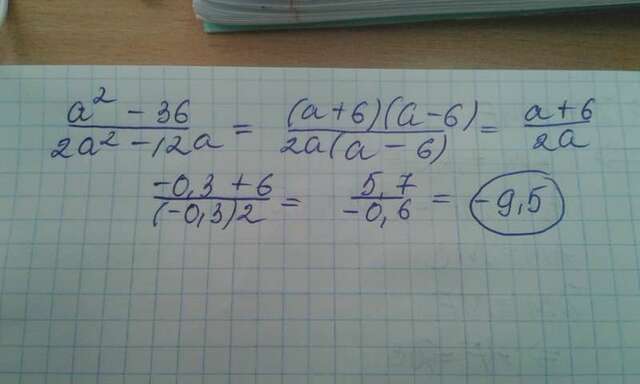 a² - 36 / 2a² - 12a = (a+6)(a-6) / 2a(a-6) = a+6 / 2a
-0,3+6 / (-0,3)2 = 5,7 / -0,6 = -9,5